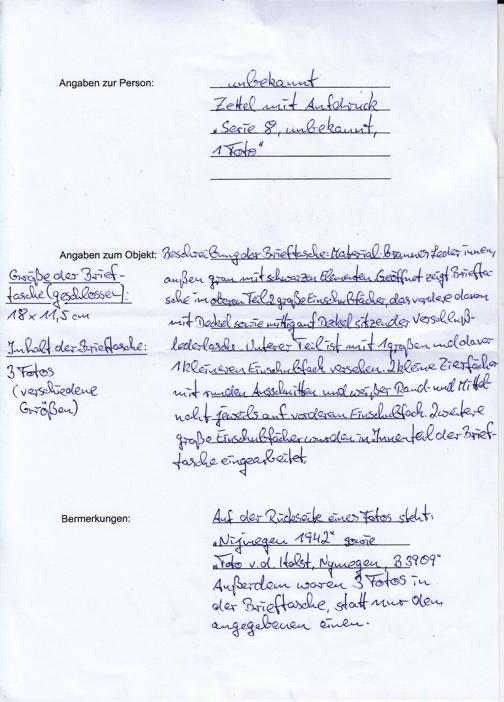 Angaben zur Person:
unbekannt
Zettel mit Aufdruck
„Serie 8, unbekannt,
1 Foto"
Angaben zum Objekt:
Beschreibung der Brieftasche: Material: brauner Leder innen,
außen grau mit schwarzen Elementen. Geöffnet zeigt Briefta-
sche im oberen Teil 2 große Einschubfächer, das vordere davon
mit Deckel sowie mittig auf Deckel sitzender Verschluß-
lederlasche. Unterer Teil ist mit 1 großen und davor
1 kleineren Einschubfach versehen. 2 kleine Zierfächer
mit runden Ausschnitten und weißer Rand- und Mittel-
naht jeweils auf vorderem Einschubfach. 2 weitere
große Einschubfächer wurden in Innenteil der Brief-
tasche eingearbeitet.
Größe der Brief-
tasche (geschlossen):
18 x 11,5 cm
Inhalt der Brieftasche:
3 Fotos
(verschiedene
Größen)
Bermerkungen:
Auf der Rückseite eines Fotos steht:
„Nijmegen 1942" sowie
„Foto v. d. Holst, Nymegen, B3909"
Außerdem waren 3 Fotos in
der Brieftasche, statt nur dem
angegebenen einen.